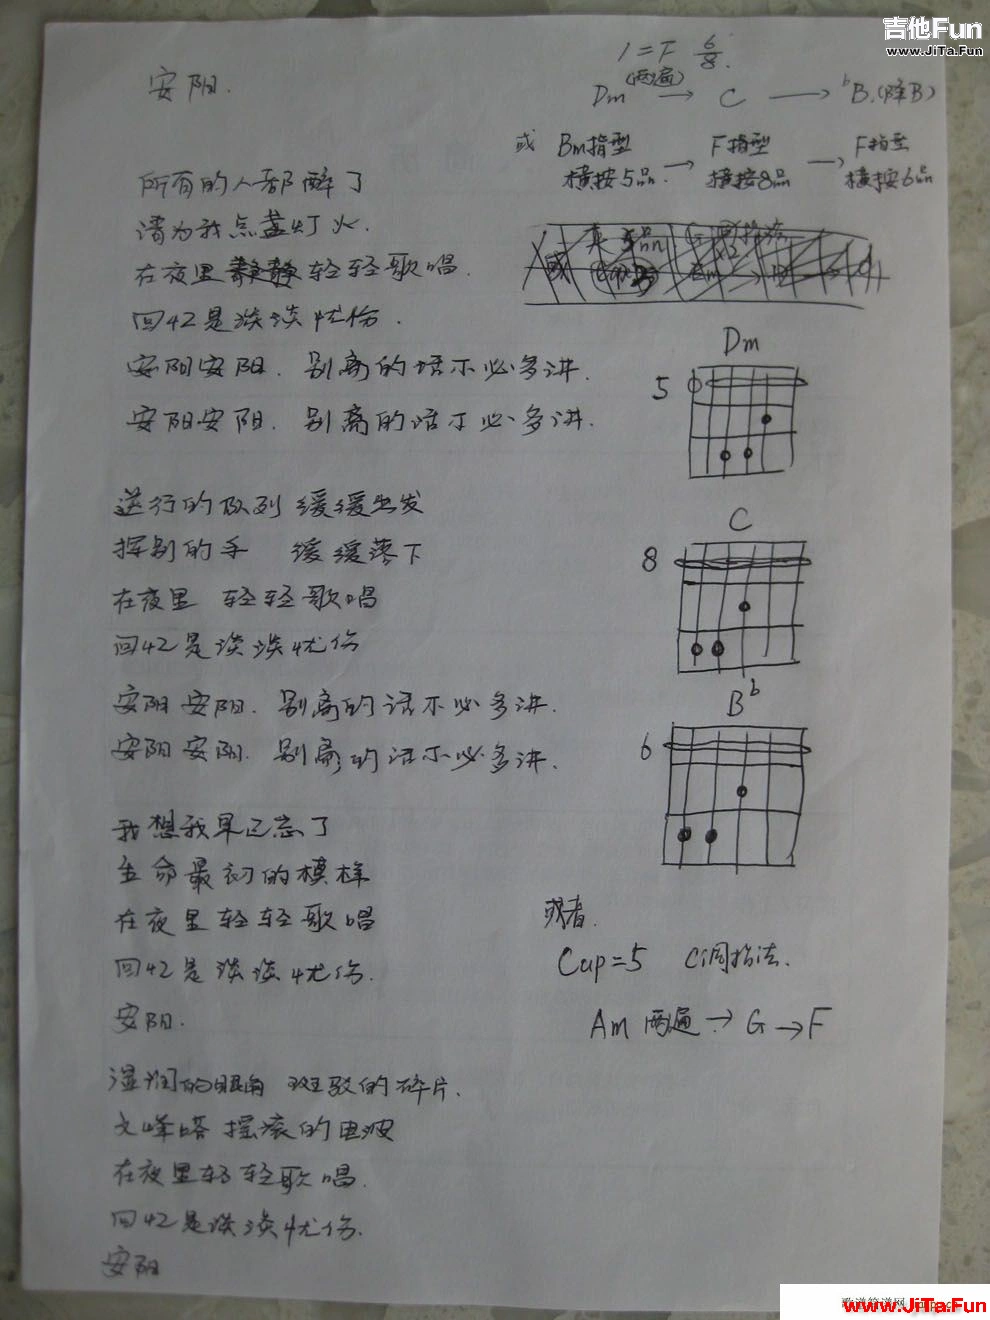 吉他Fun
www.JiTa.Fun
安阳.
1=F 6/8.
(两遍)
Dm → C → ᵇB.(降B)
或 Bm指型 → F指型 → F指型
横按5品. 横按8品 横按6品
所有的人都醉了
请为我点盏灯火.
在夜里静静轻轻歌唱.
回忆是淡淡忧伤.
安阳安阳. 别离的话不必多讲.
安阳安阳. 别离的话不必多讲.
送行的队列 缓缓出发
挥别的手 缓缓落下
在夜里 轻轻歌唱
回忆是淡淡忧伤
安阳安阳. 别离的话不必多讲.
安阳安阳. 别离的话不必多讲.
我想我早已忘了
生命最初的模样
在夜里轻轻歌唱
回忆是淡淡忧伤.
安阳.
湿润的眼角 斑驳的碎片.
文峰塔 摇滚的电波
在夜里轻轻歌唱.
回忆是淡淡忧伤.
安阳
Dm
5
C
8
Bᵇ
6
或者.
Cap=5 C调指法.
Am 两遍 → G → F
www.JiTa.Fun